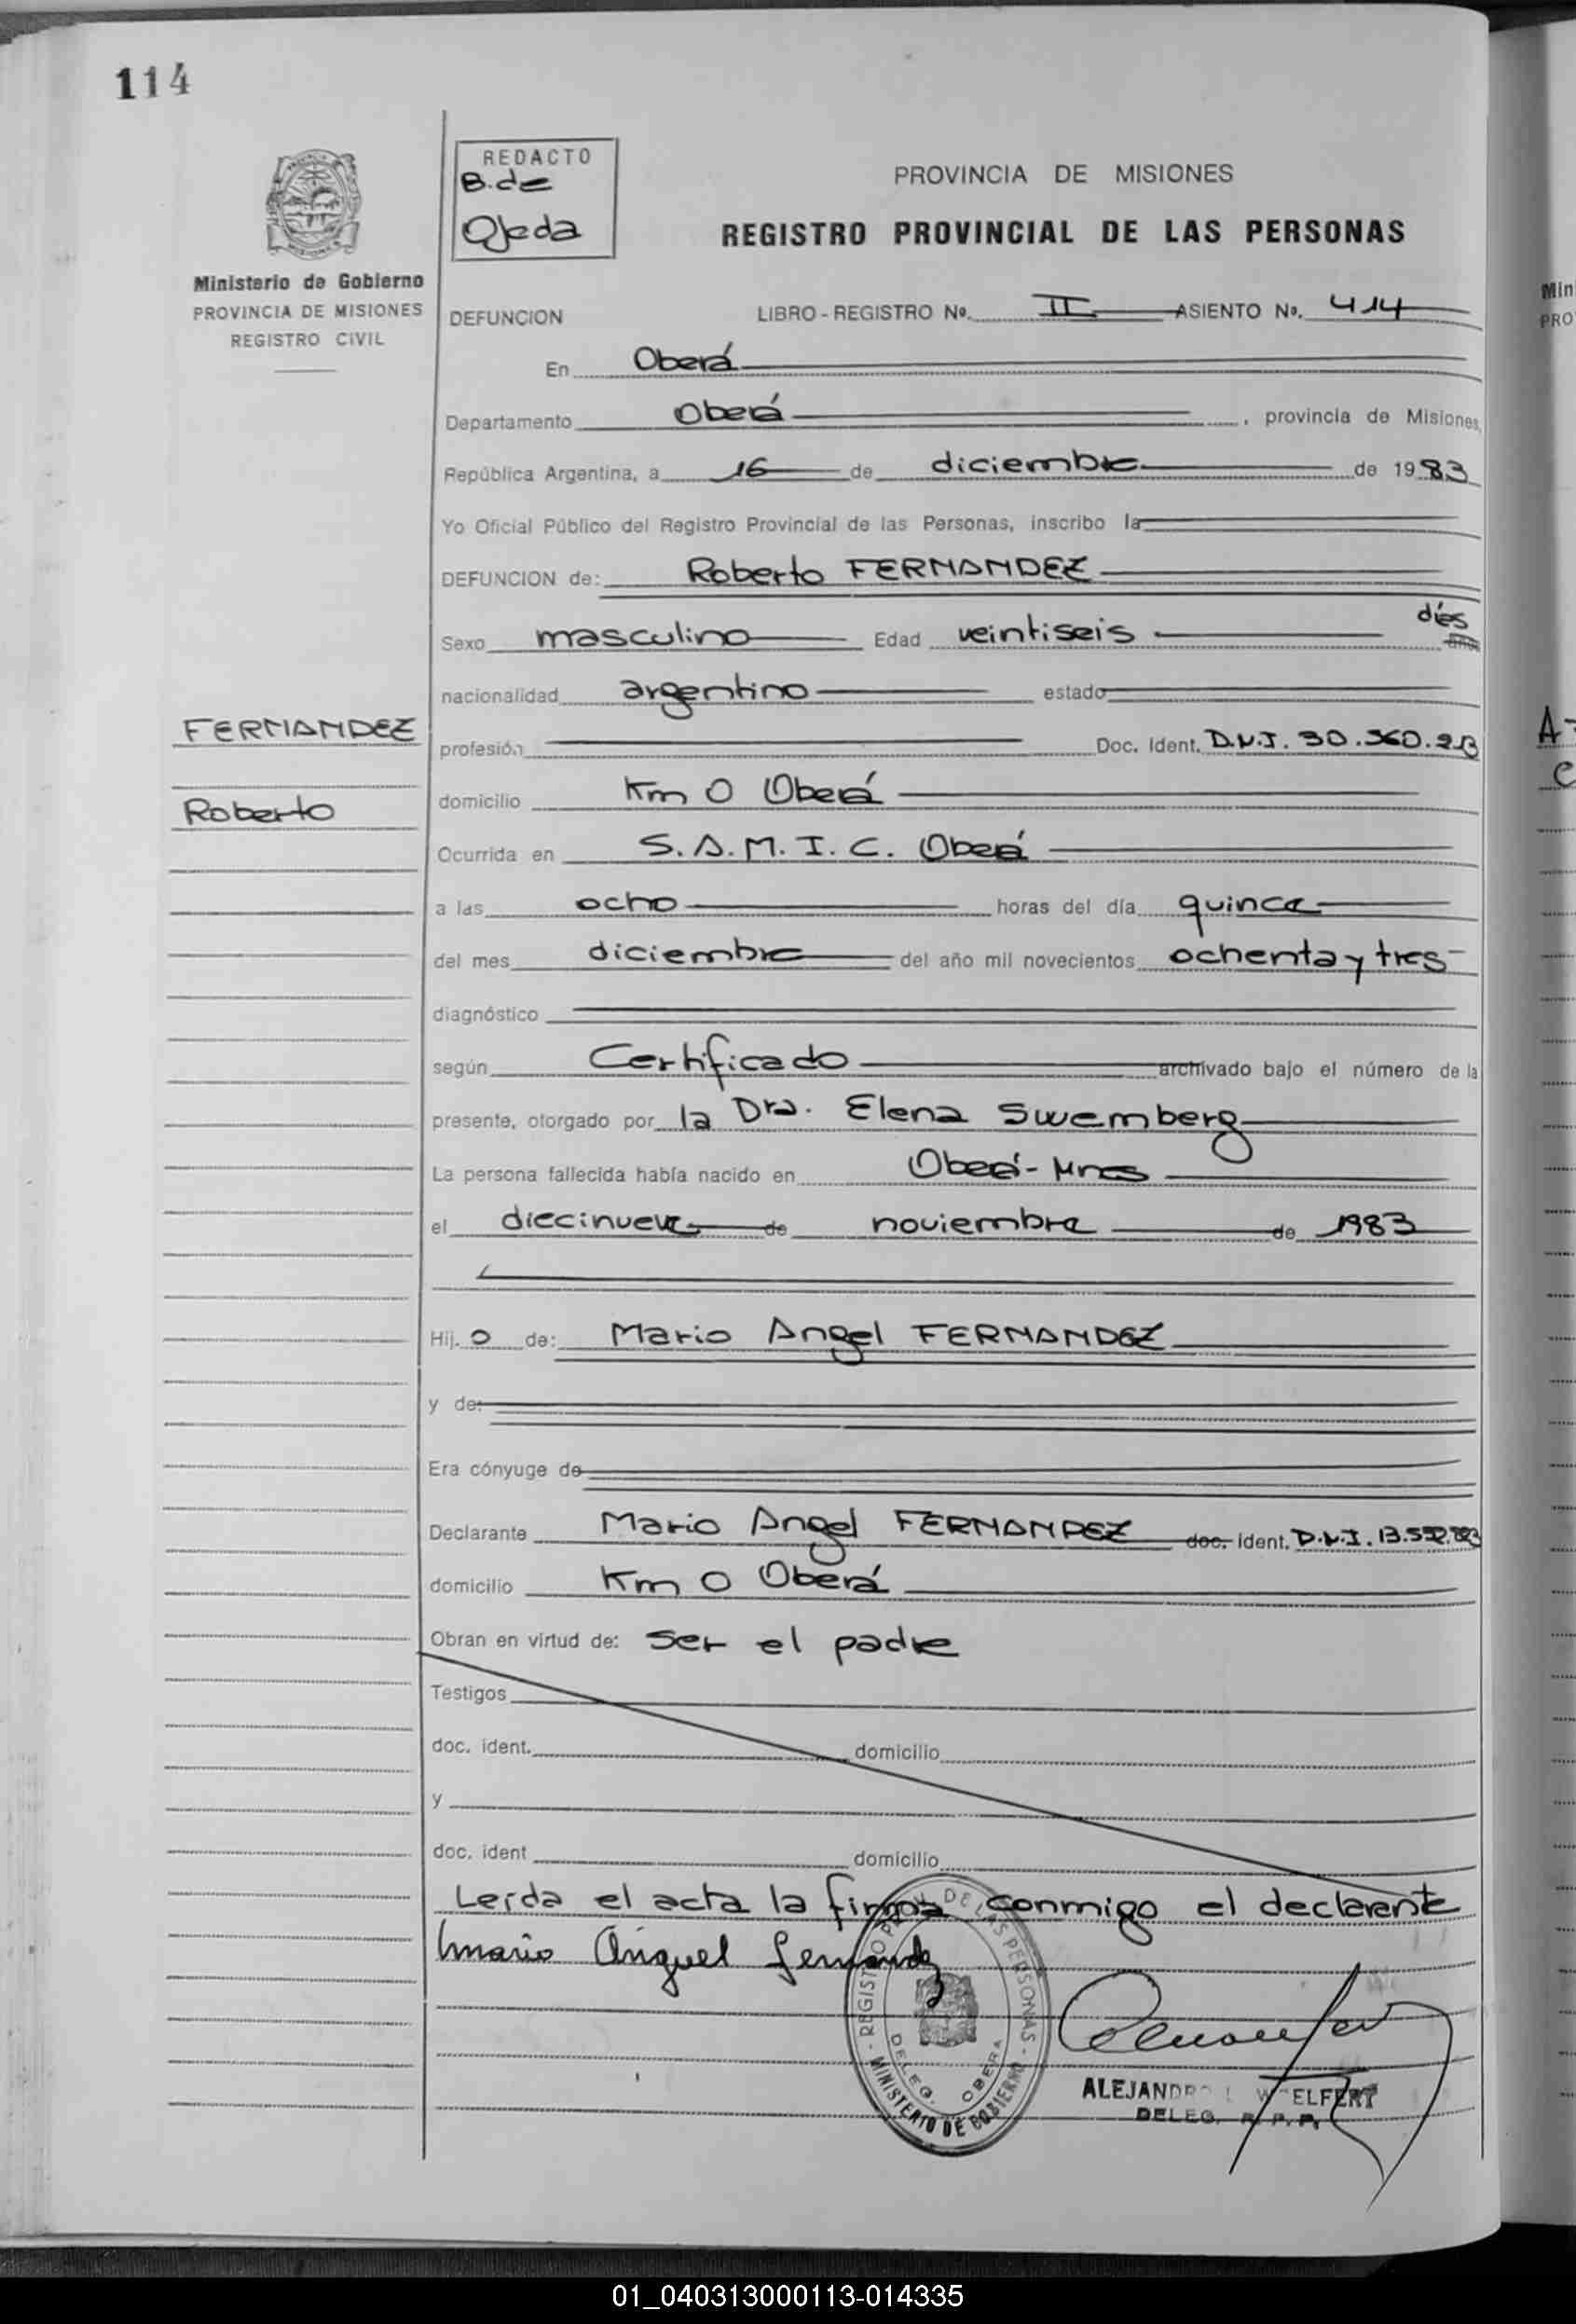 114
REDACTO
B. de
Ojeda
PROVINCIA DE MISIONES
REGISTRO PROVINCIAL DE LAS PERSONAS
Ministerio de Gobierno
PROVINCIA DE MISIONES
REGISTRO CIVIL
DEFUNCION LIBRO - REGISTRO Nº. II ASIENTO Nº. 414
En Oberá
Departamento Oberá, provincia de Misiones,
República Argentina, a 16 de diciembre de 1983
Yo Oficial Público del Registro Provincial de las Personas, inscribo la
DEFUNCION de: Roberto FERNANDEZ
Sexo masculino Edad veintiseis días
nacionalidad argentino estado
FERNANDEZ
profesión Doc. Ident. D.N.I. 30.360.213
Roberto
domicilio Km 0 Oberá
Ocurrida en S.A.M.I.C. Oberá
a las ocho horas del día quince
del mes diciembre del año mil novecientos ochenta y tres
diagnóstico
según Certificado archivado bajo el número de la
presente, otorgado por la Dra. Elena Swemberg
La persona fallecida había nacido en Oberá - Mnes
el diecinueve de noviembre de 1983
Hij. o de: Mario Angel FERNANDEZ
y de:
Era cónyuge de
Declarante Mario Angel FERNANDEZ doc. ident. D.N.I. 13.552.
domicilio Km 0 Oberá
Obran en virtud de: ser el padre
Testigos
doc. ident. domicilio
y
doc. ident domicilio
Leída el acta la firma conmigo el declarante
Mario Anguel Fernandez
REGISTRO DE LAS PERSONAS - MINISTERIO DE GOBIERNO
DELEG. OBERA
ALEJANDRO WOELFERT
DELEG. R. P. P.
Min
PRO
01_040313000113-014335